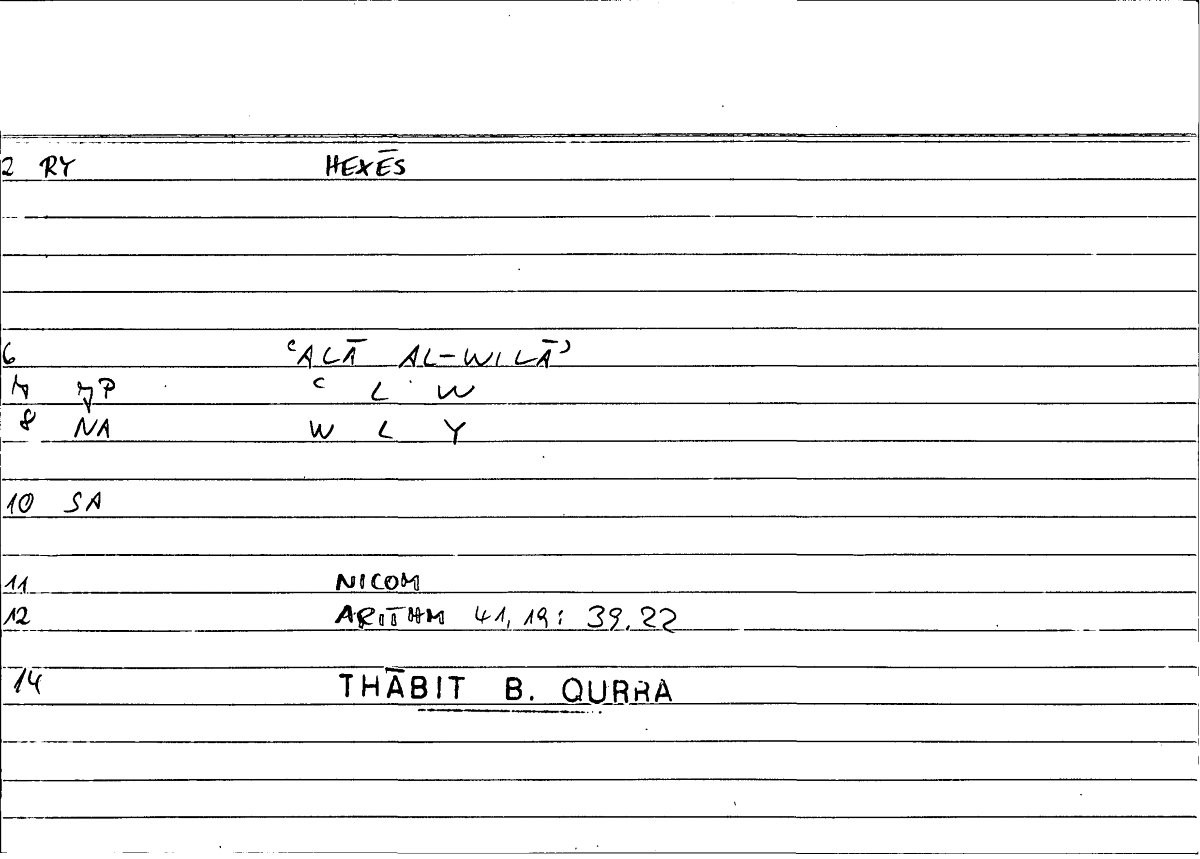 2 RY HEXĒS
6 ʿALĀ AL-WILĀʾ
7 JP ʿ L W
8 NA W L Y
10 SA
11 NICOM
12 ARITHM 41,19: 39.22
14 THĀBIT B. QURRA